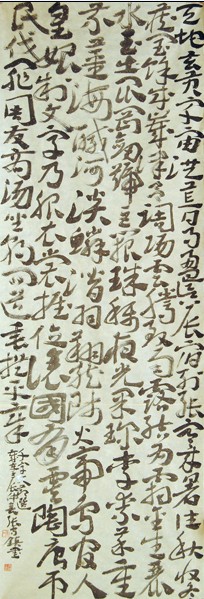 天地玄黃宇宙洪荒日月盈昃辰宿列張寒來暑往秋收冬
藏閏餘成歲律呂調陽雲騰致雨露結為霜金生麗
水玉出崑岡劍號巨闕珠稱夜光果珍李柰菜重
芥薑海鹹河淡鱗潛羽翔龍師火帝鳥官人
皇始制文字乃服衣裳推位讓國有虞陶唐弔
民伐罪周發商湯坐朝問道垂拱平章